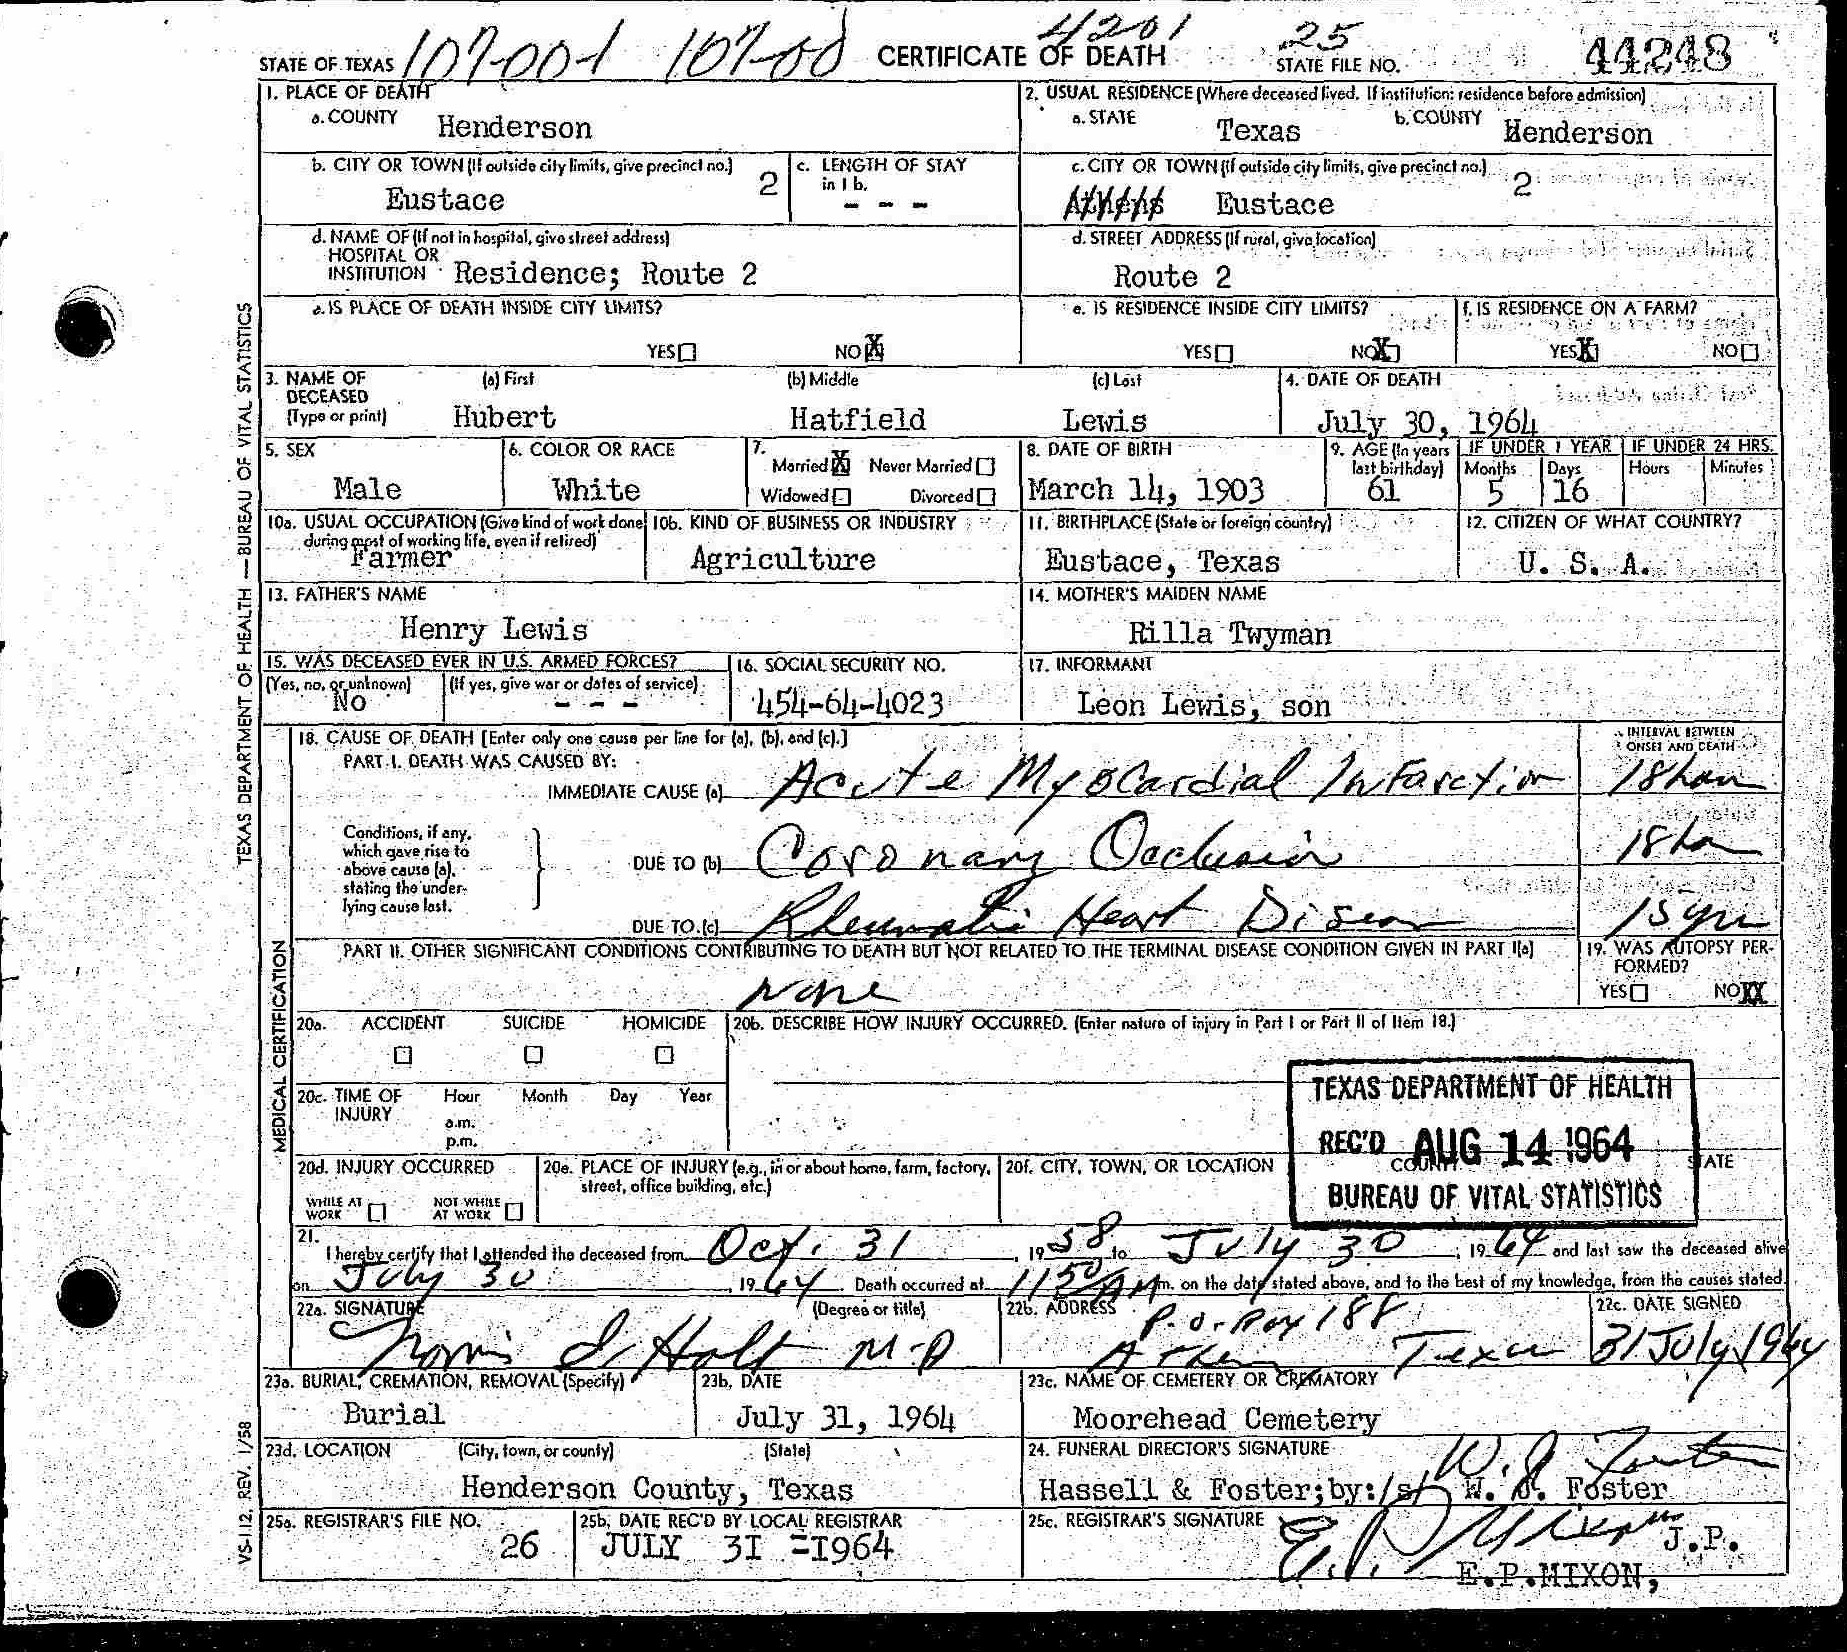 STATE OF TEXAS 107-001 107-00 CERTIFICATE OF DEATH 4201 25 STATE FILE NO. 44248
1. PLACE OF DEATH
a. COUNTY Henderson
2. USUAL RESIDENCE (Where deceased lived. If institution: residence before admission)
a. STATE Texas b. COUNTY Henderson
b. CITY OR TOWN (If outside city limits, give precinct no.) Eustace 2
c. LENGTH OF STAY in 1 b. - - -
c. CITY OR TOWN (If outside city limits, give precinct no.) 2
Athens Eustace
d. NAME OF (If not in hospital, give street address)
HOSPITAL OR
INSTITUTION Residence; Route 2
d. STREET ADDRESS (If rural, give location)
Route 2
e. IS PLACE OF DEATH INSIDE CITY LIMITS?
YES NO X
e. IS RESIDENCE INSIDE CITY LIMITS?
YES NO X
f. IS RESIDENCE ON A FARM?
YES X NO
3. NAME OF DECEASED (Type or print)
(a) First (b) Middle (c) Last
Hubert Hatfield Lewis
4. DATE OF DEATH
July 30, 1964
5. SEX
Male
6. COLOR OR RACE
White
7. Married X Never Married
Widowed Divorced
8. DATE OF BIRTH
March 14, 1903
9. AGE (In years last birthday)
61
IF UNDER 1 YEAR IF UNDER 24 HRS.
Months Days Hours Minutes
5 16
10a. USUAL OCCUPATION (Give kind of work done during most of working life, even if retired)
Farmer
10b. KIND OF BUSINESS OR INDUSTRY
Agriculture
11. BIRTHPLACE (State or foreign country)
Eustace, Texas
12. CITIZEN OF WHAT COUNTRY?
U. S. A.
13. FATHER'S NAME
Henry Lewis
14. MOTHER'S MAIDEN NAME
Rilla Twyman
15. WAS DECEASED EVER IN U.S. ARMED FORCES?
(Yes, no, or unknown) (If yes, give war or dates of service)
No - - -
16. SOCIAL SECURITY NO.
454-64-4023
17. INFORMANT
Leon Lewis, son
18. CAUSE OF DEATH [Enter only one cause per line for (a), (b), and (c).]
INTERVAL BETWEEN ONSET AND DEATH
PART I. DEATH WAS CAUSED BY:
IMMEDIATE CAUSE (a) Acute Myocardial Infarction 18 hou
Conditions, if any, which gave rise to above cause (a), stating the underlying cause last.
DUE TO (b) Coronary Occlusion 18 ho
DUE TO (c) Rheumatic Heart Disease 15 yrs
PART II. OTHER SIGNIFICANT CONDITIONS CONTRIBUTING TO DEATH BUT NOT RELATED TO THE TERMINAL DISEASE CONDITION GIVEN IN PART I(a)
None
19. WAS AUTOPSY PERFORMED?
YES NO XX
20a. ACCIDENT SUICIDE HOMICIDE
20b. DESCRIBE HOW INJURY OCCURRED. (Enter nature of injury in Part I or Part II of Item 18.)
20c. TIME OF INJURY Hour Month Day Year
a.m.
p.m.
20d. INJURY OCCURRED
WHILE AT WORK NOT WHILE AT WORK
20e. PLACE OF INJURY (e.g., in or about home, farm, factory, street, office building, etc.)
20f. CITY, TOWN, OR LOCATION COUNTY STATE
TEXAS DEPARTMENT OF HEALTH
REC'D AUG 14 1964
BUREAU OF VITAL STATISTICS
21.
I hereby certify that I attended the deceased from Oct. 31, 1958 to July 30, 1964 and last saw the deceased alive
on July 30, 1964. Death occurred at 1150 A m. on the date stated above, and to the best of my knowledge, from the causes stated.
22a. SIGNATURE (Degree or title)
Norris L. Holt M-D
22b. ADDRESS
P.O. Box 188
Athens Texas
22c. DATE SIGNED
31 July 1964
23a. BURIAL, CREMATION, REMOVAL (Specify)
Burial
23b. DATE
July 31, 1964
23c. NAME OF CEMETERY OR CREMATORY
Moorehead Cemetery
23d. LOCATION (City, town, or county) (State)
Henderson County, Texas
24. FUNERAL DIRECTOR'S SIGNATURE
Hassell & Foster;by:/s/ W. J. Foster
25a. REGISTRAR'S FILE NO.
26
25b. DATE REC'D BY LOCAL REGISTRAR
JULY 31 -1964
25c. REGISTRAR'S SIGNATURE
E.P. Mixon J.P.
E.P.MIXON,
TEXAS DEPARTMENT OF HEALTH — BUREAU OF VITAL STATISTICS
MEDICAL CERTIFICATION
VS-112, REV. 1/58